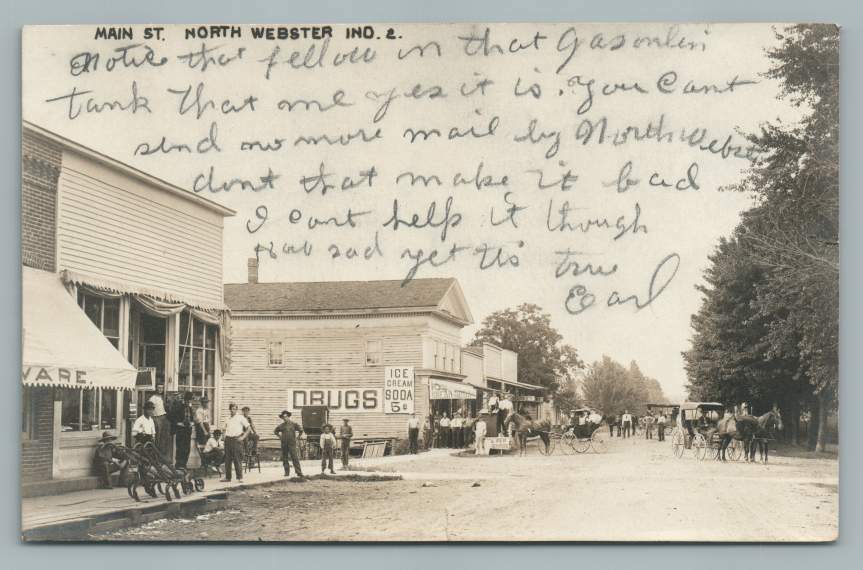 MAIN ST. NORTH WEBSTER IND. 2.
Notice that fellow in that Gasonlin
tank that me yes it is. You Cant
send no more mail by North Webster
dont that make it bad
I cant help it though
sad yet tis true
Earl
WARE.
DRUGS
ICE
CREAM
SODA
5¢